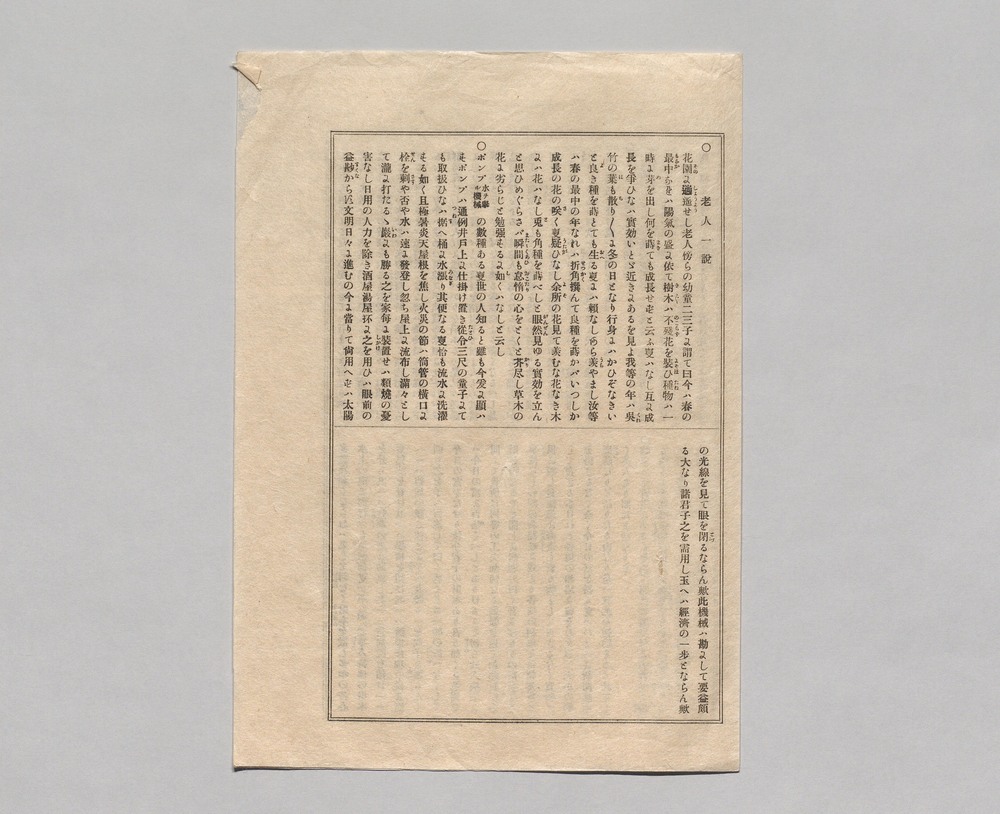 ○
老人一說
花園に逍遥せし老人傍らの幼童二三子に謂て曰今ハ春の
最中らをハ陽氣の盛に依て樹木ハ不殘花を裝ひ種物ハ一
時に芽を出し何を蒔ても成長せむと云ふ叓ハなし互に成
長を爭ひなハ實効いと〻近きにあるを見よ我等の年ハ呉
竹の葉も散り〳〵に冬の日となり行身にハかひぞなきい
と良き種を蒔とても生る叓にハ賴なしゆら羨やまし汝等
ハ春の最中の年なれハ折角撰んて良種を蒔かバいつしか
成長の花の咲く叓疑ひなし余所の花見て羨むな花なき木
にハ花ハなし兎も角種を蒔べしと眼然見ゆる實効を立ん
と思ひめぐらさバ瞬間も怠惰の心をとくと芥尽し草木の
花に劣らじと勉强そるに如くハなしと云し
○ポンプ の數種ある叓世の人知ると雖も今爰に顕ハ
そポンプハ通例井戸上に仕掛け置き從令三尺の童子にて
も取扱ひなハ居へ桶に水漲り其便なる叓恰も流水に洗濯
そる如く且極暑炎天屋根を焦し火災の節ハ筒管の橫口に
栓を刺や否や水ハ速に發登し忽ち屋上に流布し滿々とし
て瀧に打たる〻巖にも勝る之を家每に裝置せハ類燒の憂
害なし日用の人力を除き酒屋湯屋抔に之を用ひハ眼前の
益尠から𛂌文明日々に進むの今に當りて尙用へをハ太陽
の光線を見て眼を閉るならん歟此機械ハ勘にして要益頗
る大なり諸君子之を需用し玉へハ經濟の一步とならん歟